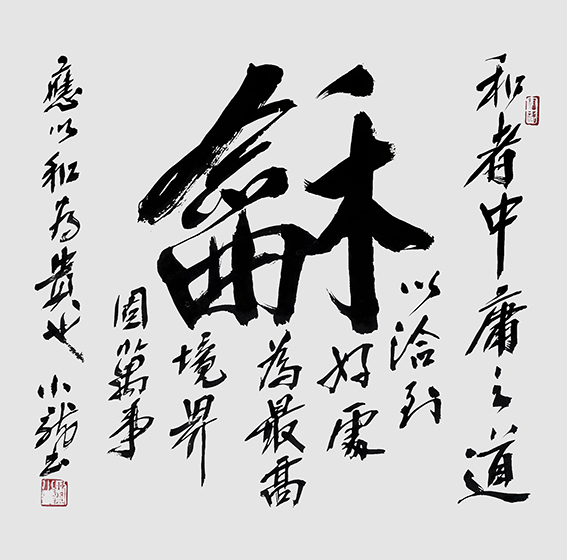 龢
和者中庸之道
以洽到
好處
為最高
境界
固萬事
應以和為貴也 小龍书